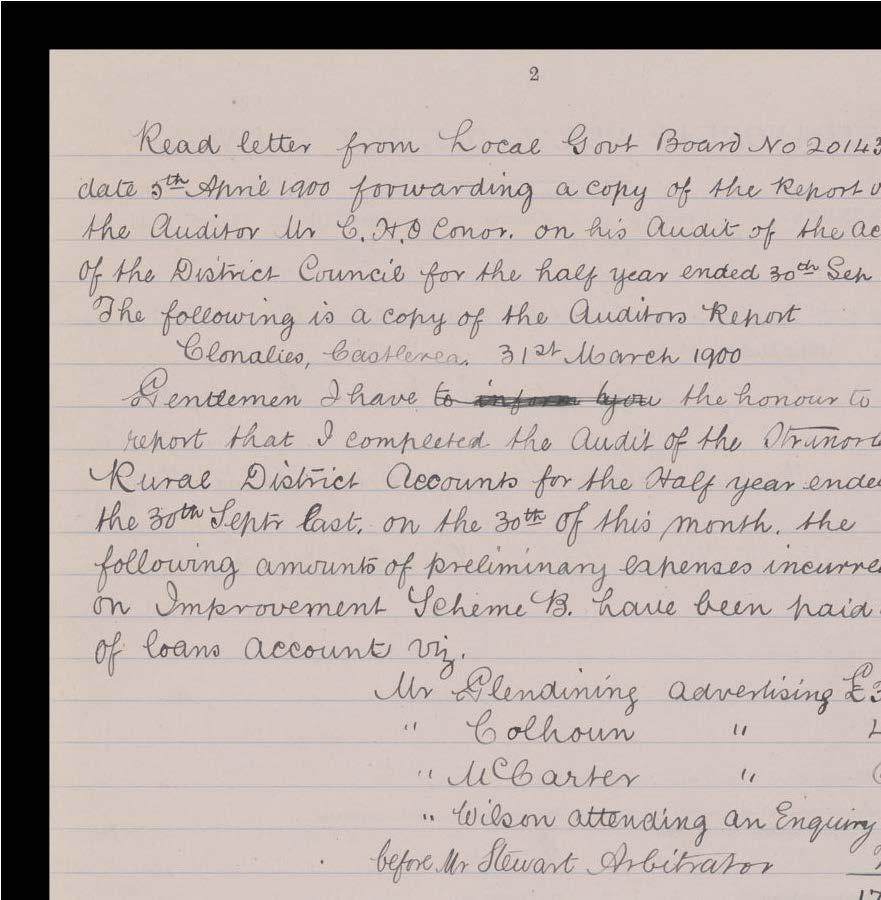 2
Read letter from Local Govt Board No 20143
date 5th April 1900 forwarding a copy of the Report
the Auditor Mr C. H. O Conor. on his Audit of the Ac
of the District Council for the half year ended 30th Sep
The following is a copy of the Auditors Report
Clonalies, Castlerea. 31st March 1900
Gentlemen I have to inform you the honour to
report that I completed the Audit of the Stranorl
Rural District Accounts for the Half year ended
the 30th Septr last. on the 30th of this month. the
following amounts of preliminary expenses incurre
on Improvement Scheme B. have been paid
of loans account viz.
Mr Glendining advertising £3
" Colhoun "
" McCarter "
" Wilson attending an Enquiry
before Mr Stewart Arbitrator
17